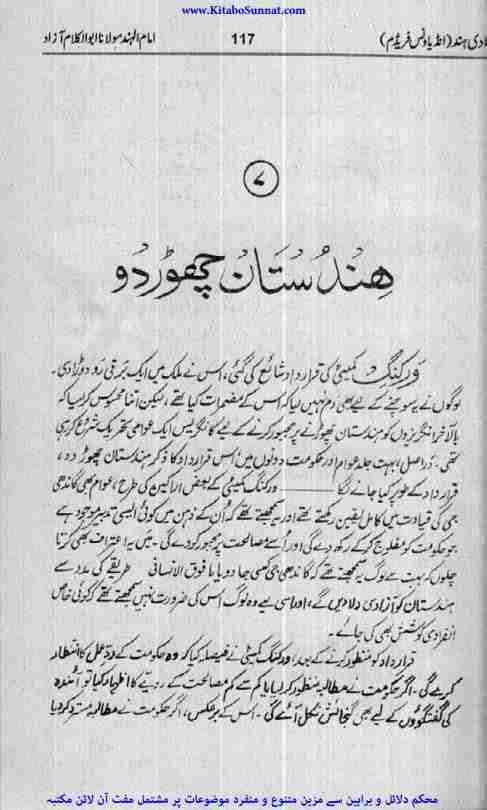 www.KitaboSunnat.com
امام الہند مولانا ابوالکلام آزاد 117 ادی ہند (انڈیا ونس فریڈم)
۷
ہندستان چھوڑ دو
ورکنگ کمیٹی کی قرارداد شائع کی گئی، اس نے ملک میں ایک برقی رو دوڑا دی۔
لوگوں نے یہ سوچنے کے لیے بھی دم نہیں لیا کہ اس کے مضمرات کیا تھے، لیکن اتنا محسوس کر لیا کہ
بالآخر انگریزوں کو ہندستان چھوڑنے پر مجبور کرنے کے لیے کانگریس ایک عوامی تحریک شروع کر رہی
تھی۔ دراصل، بہت جلد عوام اور حکومت دونوں میں اس قرارداد کا ذکر ہندستان چھوڑ دو،
قرارداد کے طور پر کیا جانے لگا ــــــــ ورکنگ کمیٹی کے بعض اراکین کی طرح، عوام بھی گاندھی
جی کی قیادت میں کامل یقین رکھتے تھے اور یہ سمجھتے تھے کہ اُن کے ذہن میں کوئی ایسی تدبیر موجود ہے
جو حکومت کو مفلوج کر کے رکھ دے گی اور اُسے مصالحت پر مجبور کر دے گی۔ میں یہ اعتراف بھی کرتا
چلوں کہ بہت سے لوگ یہ سمجھتے تھے کہ گاندھی جی کسی جادو یا مافوق الانسانی طریقے کی مدد سے
ہندستان کو آزادی دلا دیں گے، اور اسی لیے وہ لوگ اس کی ضرورت نہیں سمجھتے تھے کہ کوئی خاص
انفرادی کوشش بھی کی جائے۔
قرارداد کو منظور کرنے کے بعد، ورکنگ کمیٹی نے فیصلہ کیا کہ وہ حکومت کے ردِّ عمل کا انتظار
کرے گی۔ اگر حکومت نے مطالبہ منظور کر لیا یا کم سے کم مصالحت کے رویّے کا اظہار کیا تو آئندہ
کی گفتگوؤں کے لیے بھی گنجائش نکل آئے گی۔ اس کے برعکس، اگر حکومت نے مطالبہ مسترد کر دیا
محکم دلائل و براہین سے مزین متنوع و منفرد موضوعات پر مشتمل مفت آن لائن مکتبہ